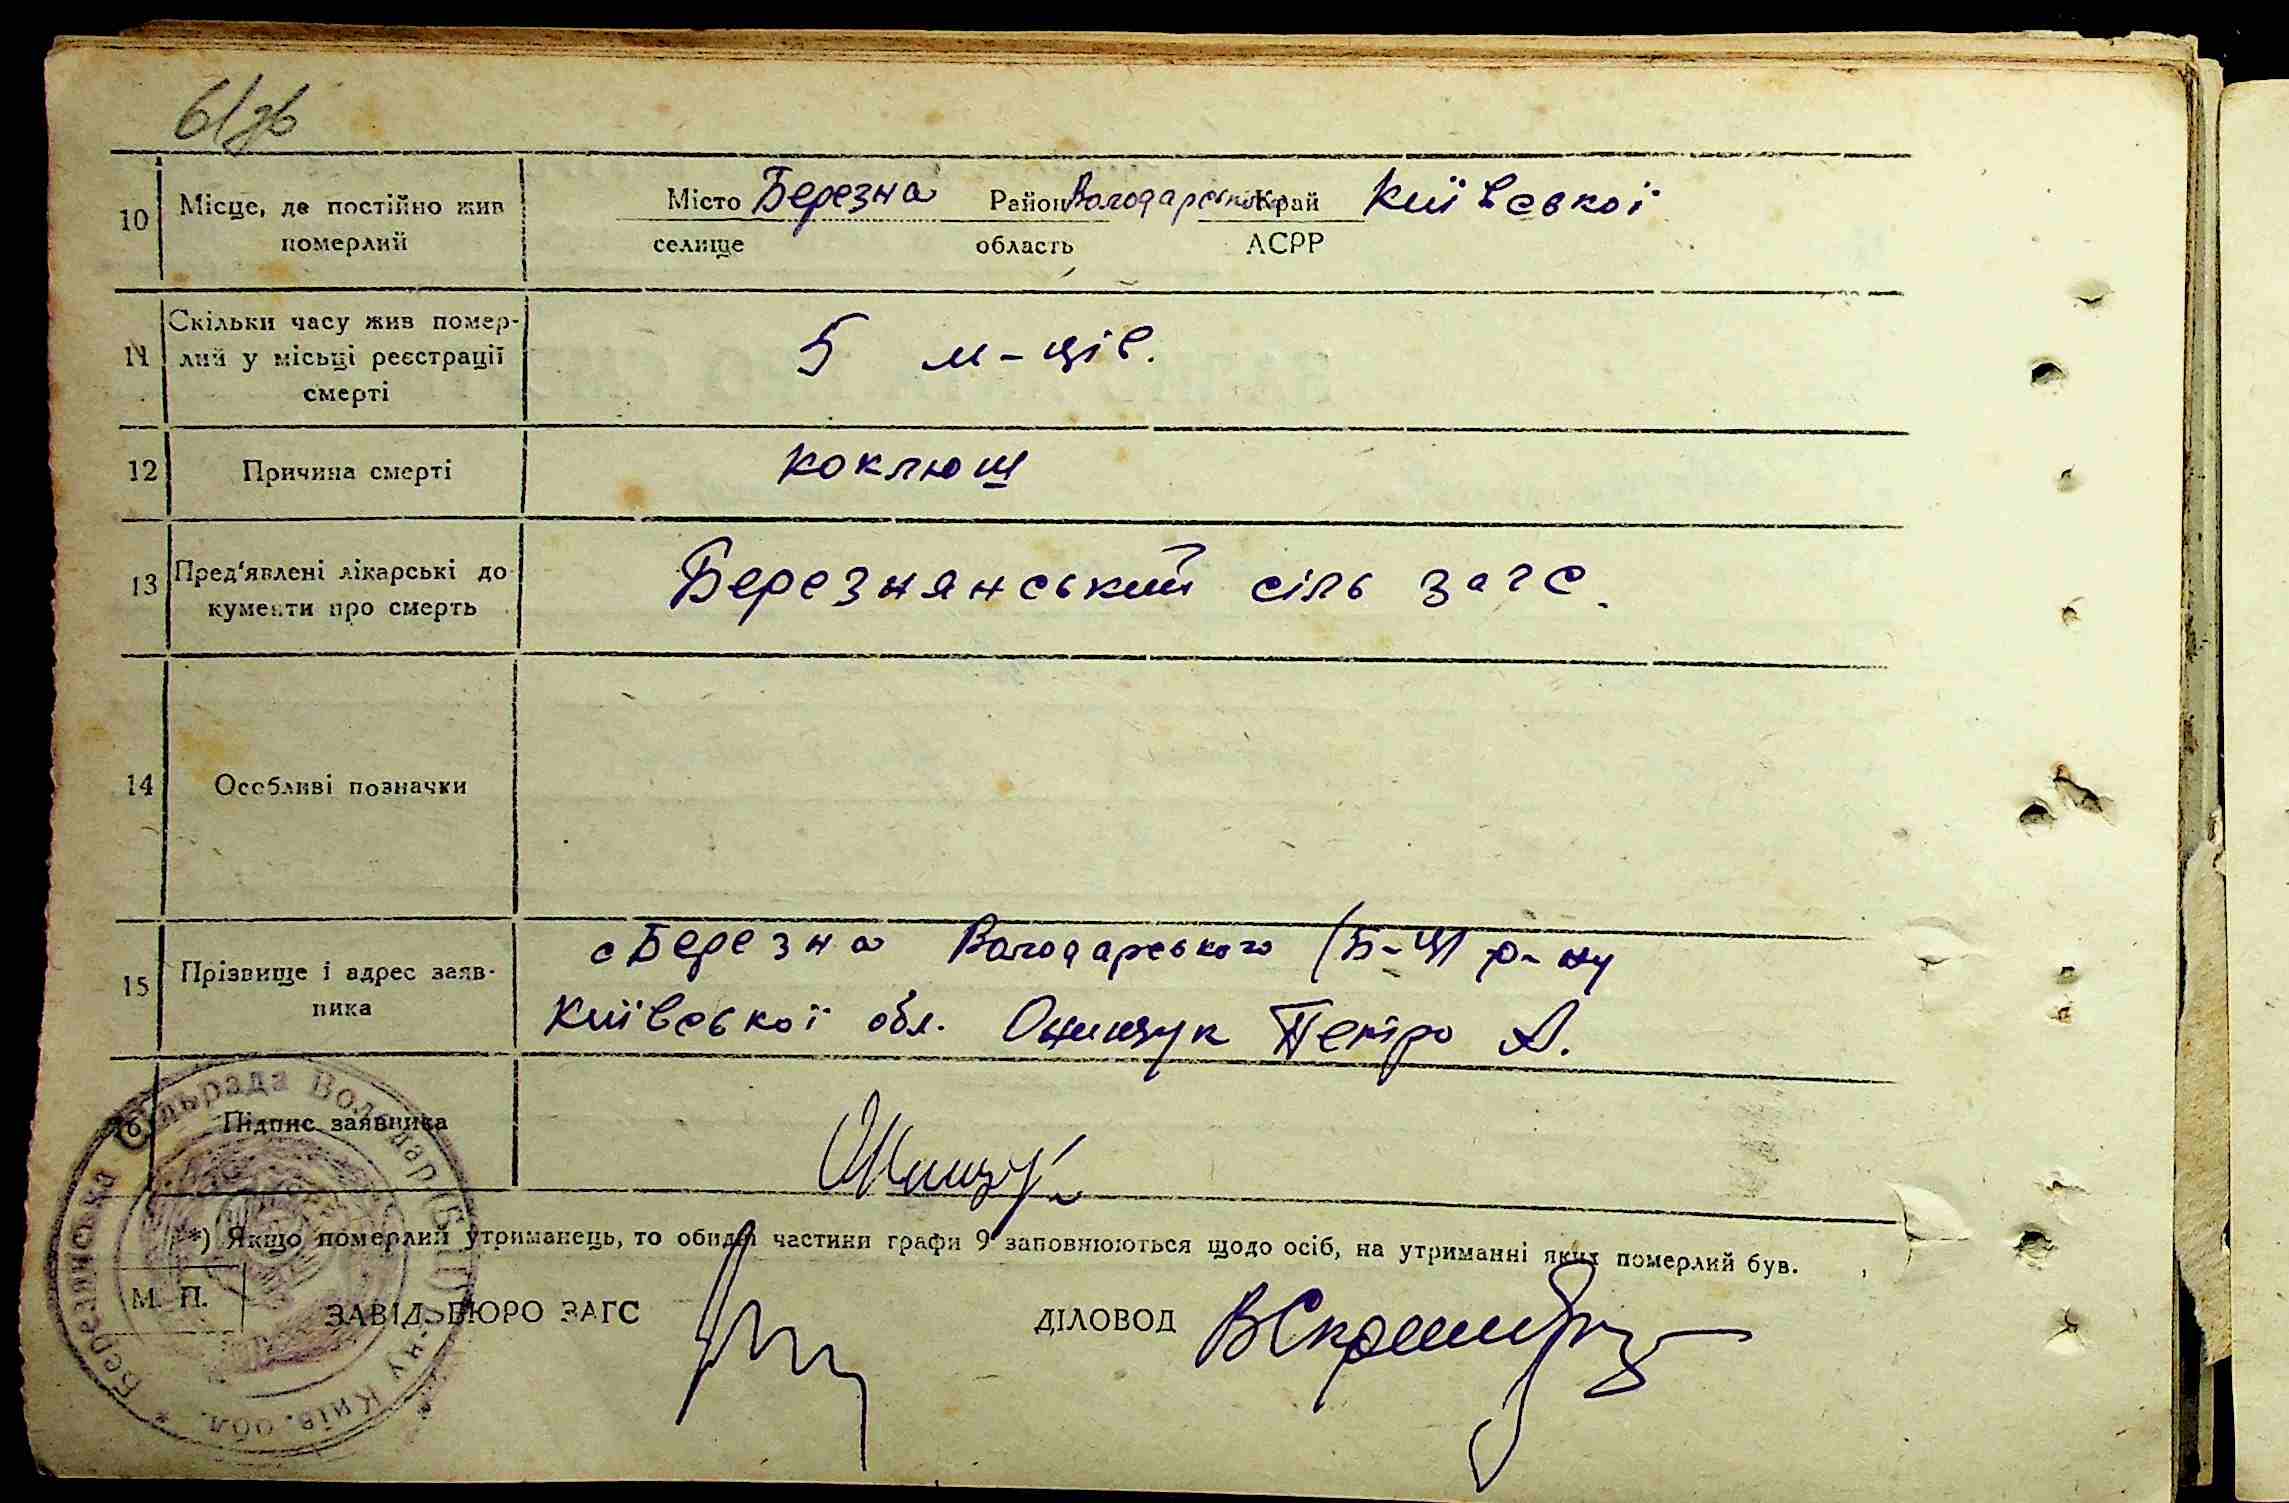 6/зв
10 Місце, де постійно жив померлий Місто Березна Район Володарський Край Київської
селище область АСРР
11 Скільки часу жив помер-
лий у місьці реєстрації
смерті
5 м-ців.
12 Причина смерті коклюш
13 Пред'явлені лікарські до
кументи про смерть
Березнянський сіль загс.
14 Особливі позначки
15 Прізвище і адрес заяв-
ника
с Березна Володарського (Б-Ц) р-ну
Київської обл. Онищук Петро А.
16 Підпис заявника Онищук
*) Якщо померлий утриманець, то обидві частини графи 9 заповнюються щодо осіб, на утриманні яких померлий був.
М. П. ЗАВІД. БЮРО ЗАГС ДІЛОВОД
Березянська Сільрада Володар. (Б-Ц) р-ну Київ. обл. *